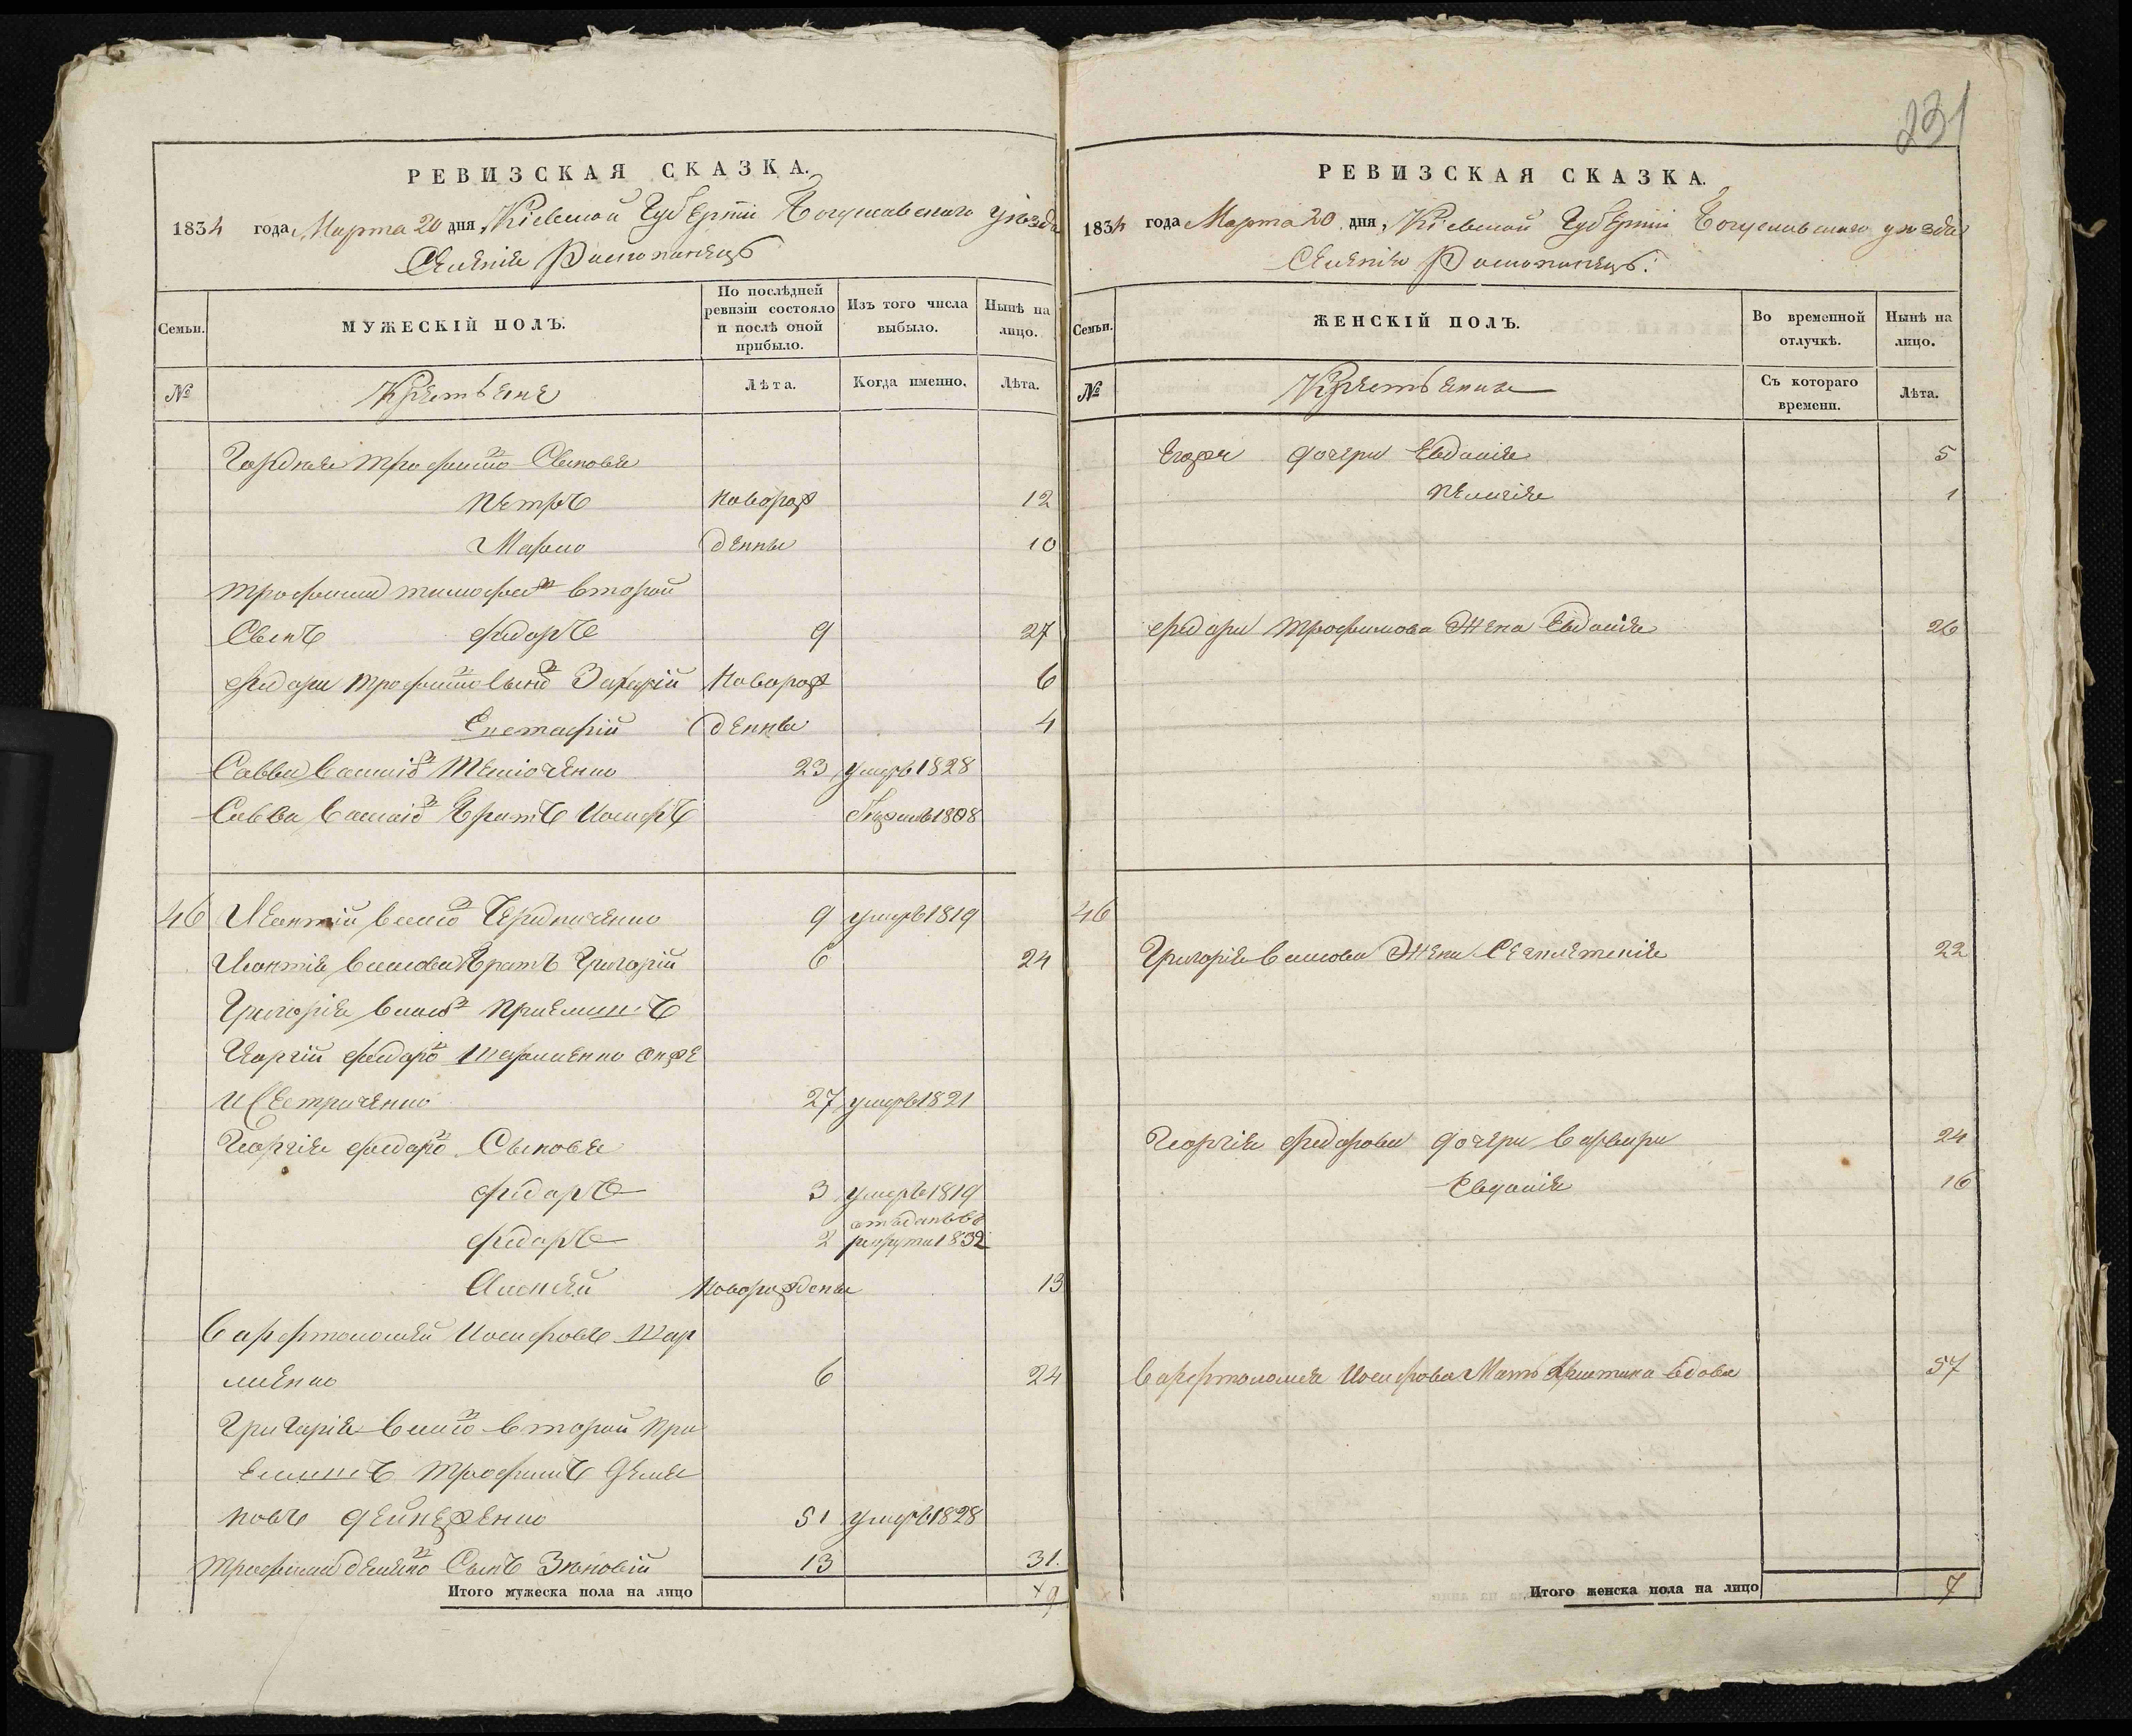 231
РЕВИЗСКАЯ СКАЗКА.
1834 года Марта 20 дня, Кіевской Губерніи Богуславскаго уѣзда
Селенія Раскопанецъ
Семьи.
МУЖЕСКІЙ ПОЛЪ.
По послѣдней ревизіи состояло и послѣ оной прибыло.
Изъ того числа выбыло.
Нынѣ на лицо.
№
Крестьяне
Лѣта.
Когда именно.
Лѣта.
Сыновья
Петръ новорож 12
Марко денны 10
Трофима второй
Сынъ Федоръ 9 27
Федора Сынъ Захарій Новорож 6
денны 4
Савва 23 умеръ 1828
Савва Братъ Иосифъ 1808
46 Леонтій Чередниченко 9 умеръ 1819
Леонтія Власова Братъ Григорій 6 24
Григорія Приемишъ
Георгій онже
27 умеръ 1821
Георгія Сыновья
Федоръ 3 умеръ 1819
отъданъ въ
Федоръ 2 рекруты 1832
Алексей Новорожденны 13
Варфтоломей Иосифовъ Шар
6 24
Григорія второй При
емишъ Трофимъ Демья
новъ Дейнеженко 51 умеръ 1828
Трофима Сынъ Зѣновій 13 31.
Итого мужеска пола на лицо 9
РЕВИЗСКАЯ СКАЗКА.
1834 года Марта 20 дня, Кіевской Губерніи Богуславскаго уѣзда
Селенія Раскопанецъ.
Семьи.
ЖЕНСКІЙ ПОЛЪ.
Во временной отлучкѣ.
Нынѣ на лицо.
№
Съ котораго времени.
Лѣта.
Егожъ дочери Евдокія 5
Пелагія 1
Федора Трофимова Жена Евдокія 26
46
Григорія Власова Жена 22
Георгія Федорова дочери Варвара 24
Евдокія 16
Варфтоломея Иосифова Мать вдова 57
Итого женска пола на лицо 7